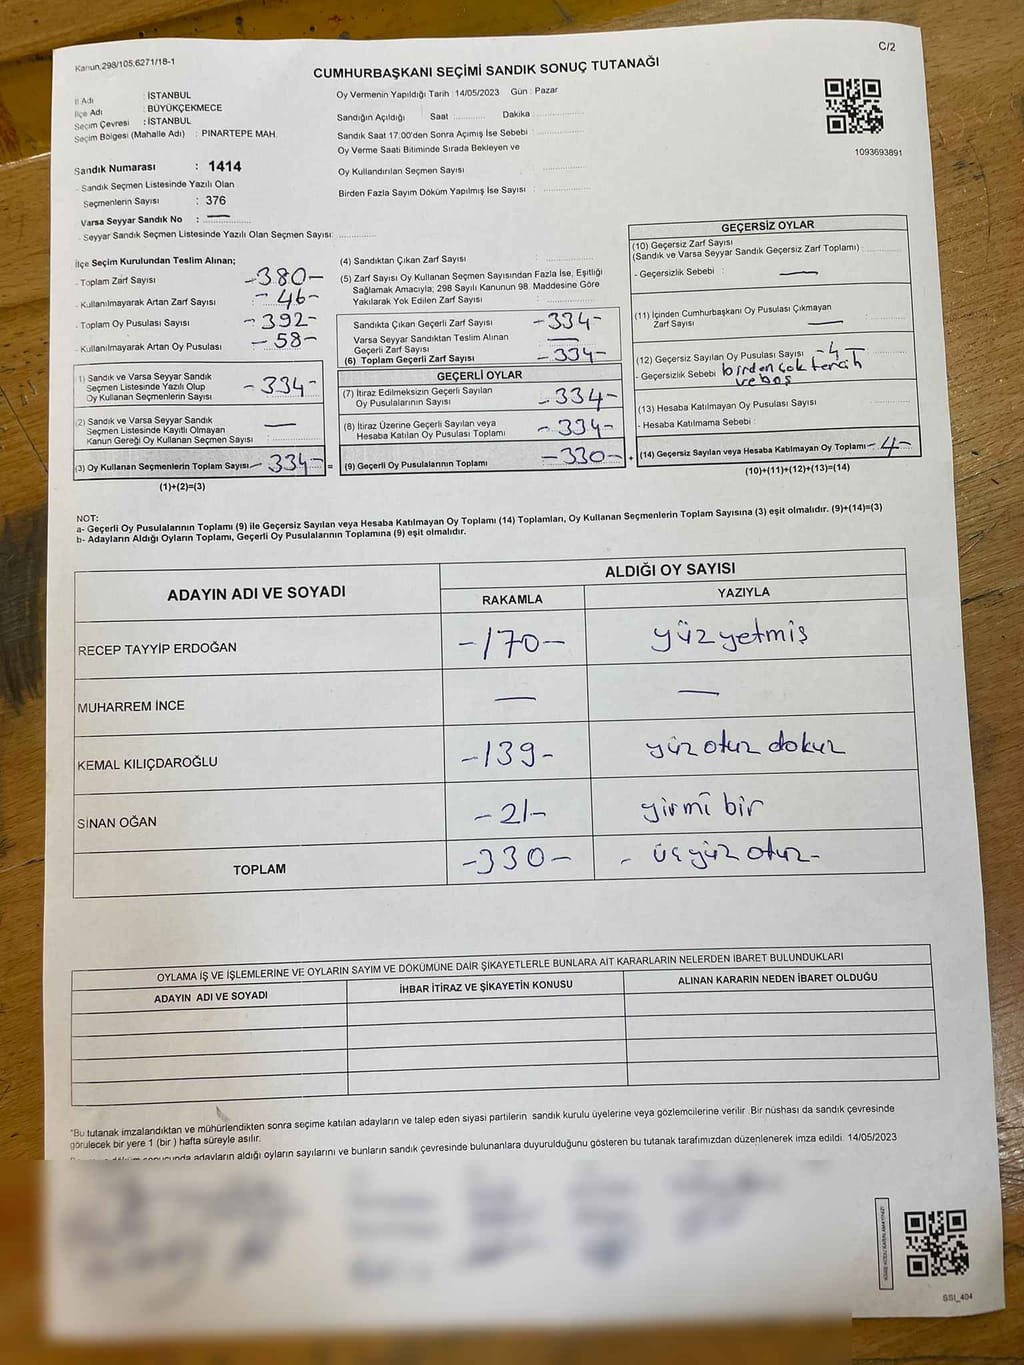 Kanun,298/105,6271/18-1
C/2
CUMHURBAŞKANI SEÇİMİ SANDIK SONUÇ TUTANAĞI
İl Adı : İSTANBUL
İlçe Adı : BÜYÜKÇEKMECE
Seçim Çevresi : İSTANBUL
Seçim Bölgesi (Mahalle Adı) : PINARTEPE MAH.
Sandık Numarası : 1414
- Sandık Seçmen Listesinde Yazılı Olan
Seçmenlerin Sayısı : 376
Varsa Seyyar Sandık No : —
- Seyyar Sandık Seçmen Listesinde Yazılı Olan Seçmen Sayısı: ............
Oy Vermenin Yapıldığı Tarih : 14/05/2023 Gün : Pazar
Sandığın Açıldığı Saat ............ Dakika ............
Sandık Saat 17:00'den Sonra Açımış İse Sebebi : ............
Oy Verme Saati Bitiminde Sırada Bekleyen ve
Oy Kullandırılan Seçmen Sayısı ............
Birden Fazla Sayım Döküm Yapılmış İse Sayısı : ............
1093693891
İlçe Seçim Kurulundan Teslim Alınan;
- Toplam Zarf Sayısı -380-
- Kullanılmayarak Artan Zarf Sayısı -46-
- Toplam Oy Pusulası Sayısı -392-
- Kullanılmayarak Artan Oy Pusulası -58-
1) Sandık ve Varsa Seyyar Sandık
Seçmen Listesinde Yazılı Olup
Oy Kullanan Seçmenlerin Sayısı - 334 -
(2) Sandık ve Varsa Seyyar Sandık
Seçmen Listesinde Kayıtlı Olmayan
Kanun Gereği Oy Kullanan Seçmen Sayısı : —
(3) Oy Kullanan Seçmenlerin Toplam Sayısı - 334- =
(1)+(2)=(3)
(4) Sandıktan Çıkan Zarf Sayısı : ............
(5) Zarf Sayısı Oy Kullanan Seçmen Sayısından Fazla İse, Eşitliği
Sağlamak Amacıyla; 298 Sayılı Kanunun 98. Maddesine Göre
Yakılarak Yok Edilen Zarf Sayısı : ............
Sandıkta Çıkan Geçerli Zarf Sayısı -334-
Varsa Seyyar Sandıktan Teslim Alınan
Geçerli Zarf Sayısı —
(6) Toplam Geçerli Zarf Sayısı -334-
GEÇERLİ OYLAR
(7) İtiraz Edilmeksizin Geçerli Sayılan
Oy Pusulalarının Sayısı -334-
(8) İtiraz Üzerine Geçerli Sayılan veya
Hesaba Katılan Oy Pusulası Toplamı -334-
(9) Geçerli Oy Pusulalarının Toplamı -330- +
GEÇERSİZ OYLAR
(10) Geçersiz Zarf Sayısı
(Sandık ve Varsa Seyyar Sandık Geçersiz Zarf Toplamı) : ............
- Geçersizlik Sebebi : —
(11) İçinden Cumhurbaşkanı Oy Pusulası Çıkmayan
Zarf Sayısı — : ............
(12) Geçersiz Sayılan Oy Pusulası Sayısı - 4 -
- Geçersizlik Sebebi birden çok tercih
ve boş
(13) Hesaba Katılmayan Oy Pusulası Sayısı : ............
- Hesaba Katılmama Sebebi :
(14) Geçersiz Sayılan veya Hesaba Katılmayan Oy Toplamı - 4 -
(10)+(11)+(12)+(13)=(14)
NOT:
a- Geçerli Oy Pusulalarının Toplamı (9) ile Geçersiz Sayılan veya Hesaba Katılmayan Oy Toplamı (14) Toplamları, Oy Kullanan Seçmenlerin Toplam Sayısına (3) eşit olmalıdır. (9)+(14)=(3)
b- Adayların Aldığı Oyların Toplamı, Geçerli Oy Pusulalarının Toplamına (9) eşit olmalıdır.
ADAYIN ADI VE SOYADI
ALDIĞI OY SAYISI
RAKAMLA YAZIYLA
RECEP TAYYİP ERDOĞAN -170- yüz yetmiş
MUHARREM İNCE — —
KEMAL KILIÇDAROĞLU -139- yüz otuz dokuz
SİNAN OĞAN -21- yirmi bir
TOPLAM -330- - üçyüz otuz-
OYLAMA İŞ VE İŞLEMLERİNE VE OYLARIN SAYIM VE DÖKÜMÜNE DAİR ŞİKAYETLERLE BUNLARA AİT KARARLARIN NELERDEN İBARET BULUNDUKLARI
ADAYIN ADI VE SOYADI İHBAR İTİRAZ VE ŞİKAYETİN KONUSU ALINAN KARARIN NEDEN İBARET OLDUĞU
"Bu tutanak imzalandıktan ve mühürlendikten sonra seçime katılan adayların ve talep eden siyasi partilerin sandık kurulu üyelerine veya gözlemcilerine verilir .Bir nüshası da sandık çevresinde
görülecek bir yere 1 (bir ) hafta süreyle asılır.
sonucunda adayların aldığı oyların sayılarını ve bunların sandık çevresinde bulunanlara duyurulduğunu gösteren bu tutanak tarafımızdan düzenlenerek imza edildi. 14/05/2023
SSI_404